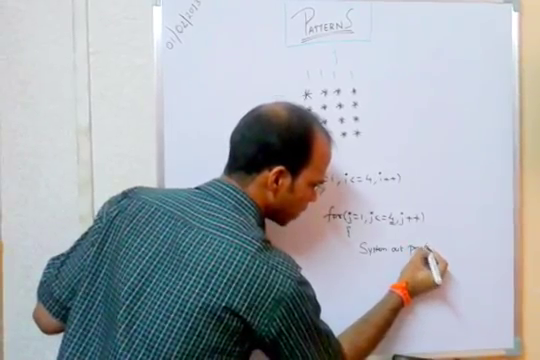 01/02/2013
PATTERNS
* * * *
* * * *
* * * *
* *
=1, i<=4, i++)
for(j=1, j<=4, j++)
{
System out